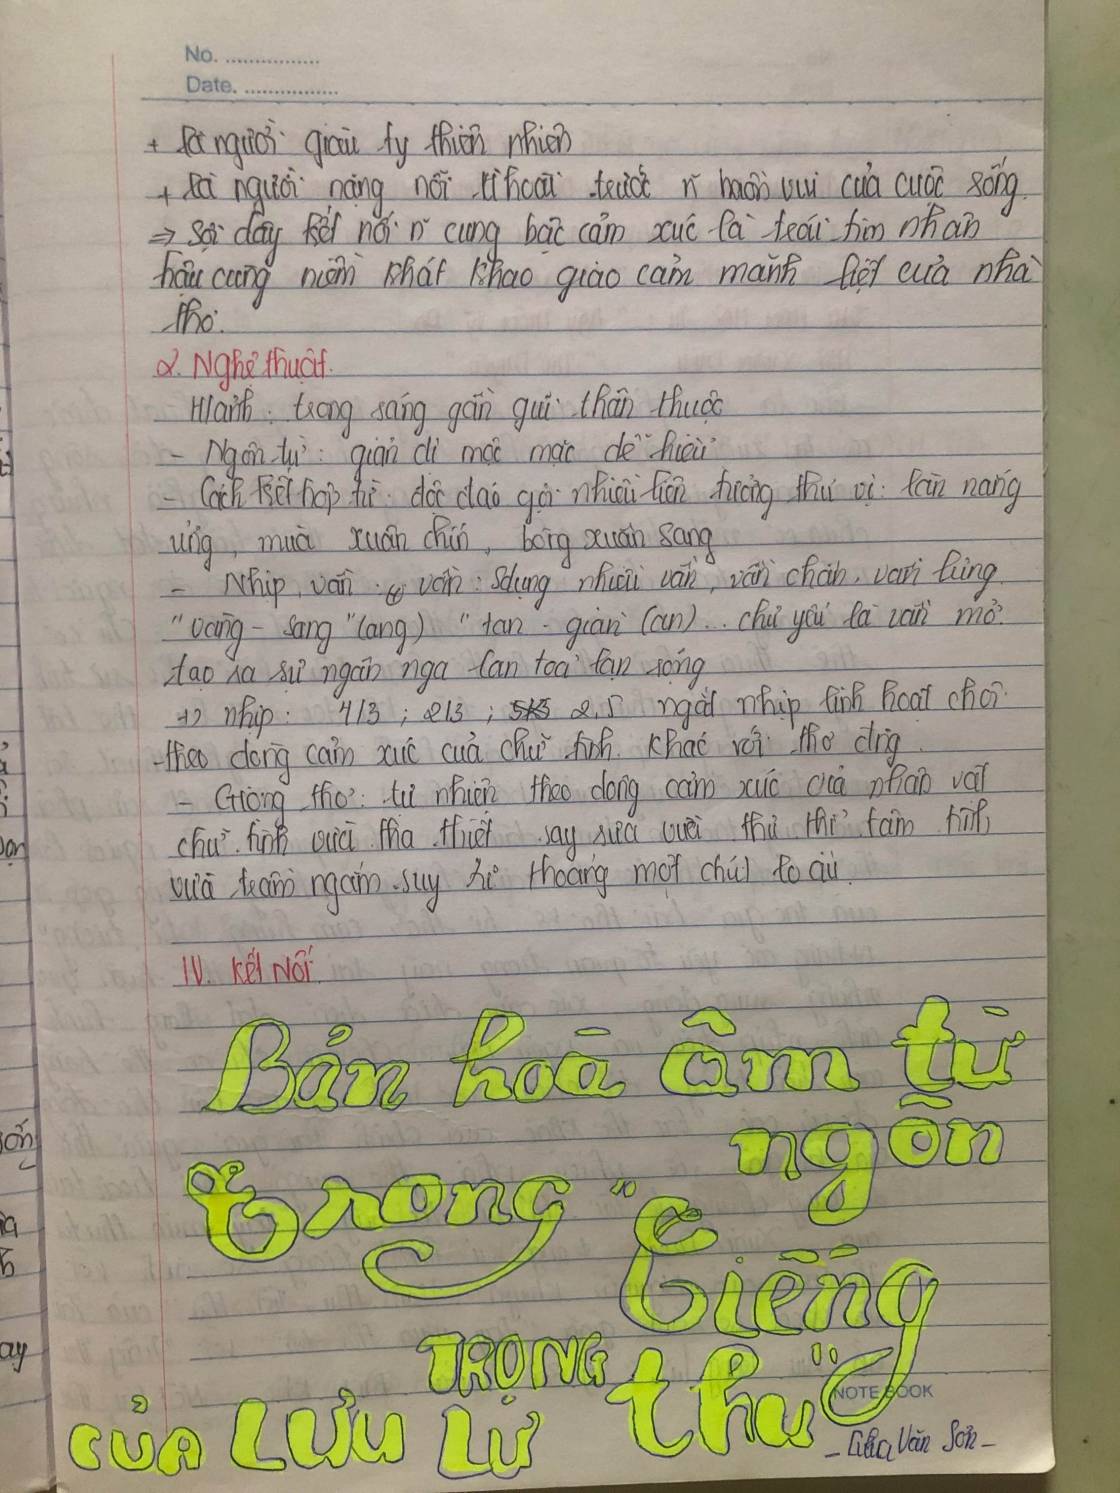 No. ................
Date. ................
+ là người giàu ty thiên nhiên
+ là người nặng nỗi trước n buồn vui của cuộc sống
⇒ Sợi dây kết nối n cung bậc cảm xúc là trái tim nhân
hậu cùng niềm khát khao giao cảm mãnh liệt của nhà
thơ.
2. Nghệ thuật
H/ảnh: trong sáng gần gũi thân thuộc
- Ngôn từ: giản dị mộc mạc dễ hiểu
- Cách kết hợp từ: độc đáo gợi nhiều liên tưởng thú vị: làn nắng
ửng, mùa xuân chín, bóng xuân sang
- Nhịp, vần: vần: Sdụng nhiều vần, vần chân, vần lưng
"vàng - sang" (ang) "tan - giàn" (an)... chủ yếu là vần mở
tạo ra sự ngân nga lan toả lan rộng
+) nhịp: 4/3; 2/3; 2,5 ngắt nhịp linh hoạt
theo dòng cảm xúc của chữ tình. Khác với thơ
- Giọng thơ: tự nhiên theo dòng cảm xúc của nhân vật
chữ tình vừa tha thiết say sưa vừa thủ thỉ tâm tình,
vừa trầm ngâm suy tư thoáng một chút lo âu.
IV. Kết Nối
Bản hoà âm từ
ngôn
trong "Tiếng
thu"
TRỌNG
CỦA LƯU LƯ
NOTE BOOK
- Chu Văn Sơn -